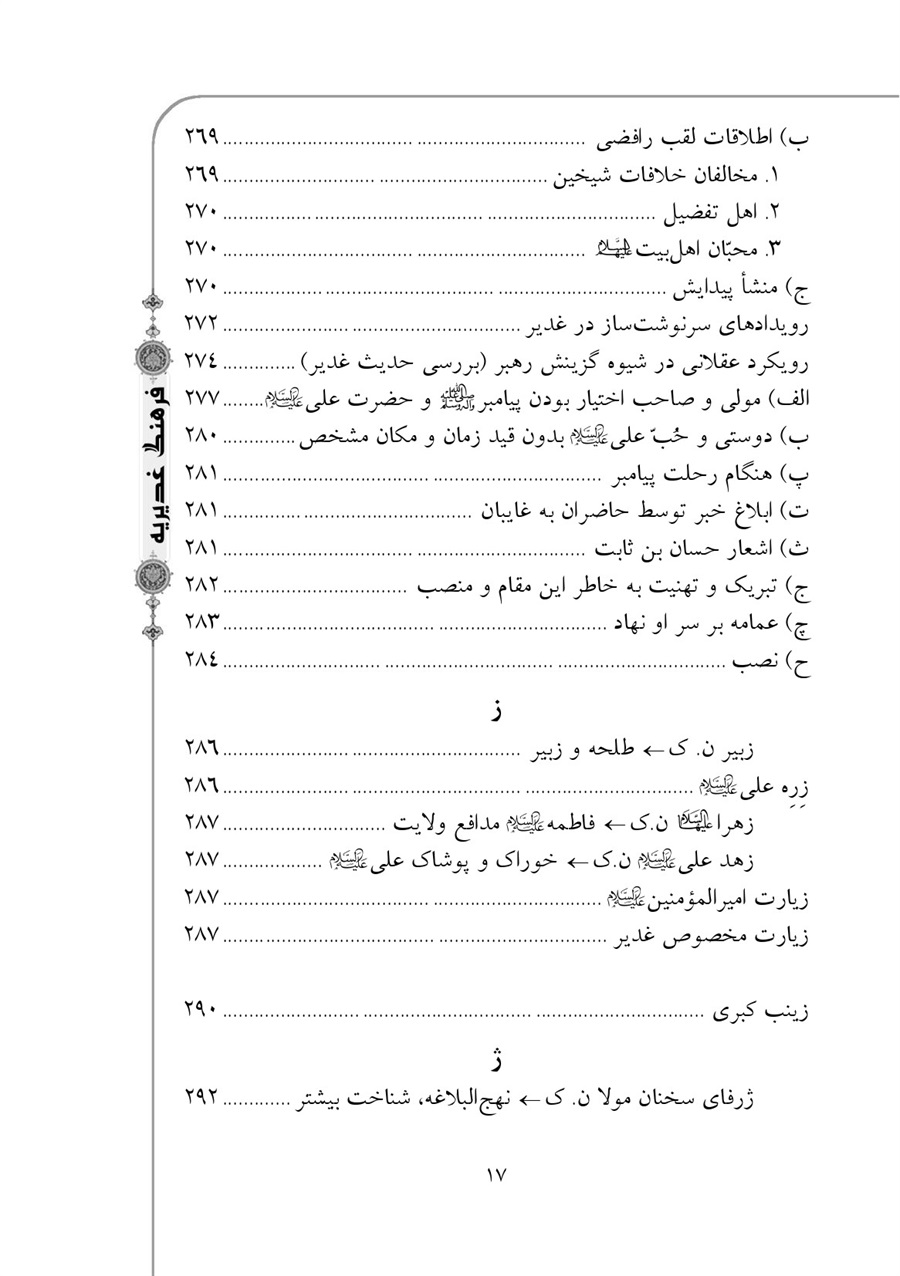 ب) اطلاقات لقب رافضی ................................................................ ٢٦٩
١. مخالفان خلافات شیخین ............................................................ ٢٦٩
٢. اهل تفضیل ................................................................................ ٢٧٠
٣. محبّان اهل‌بیت علیهم‌السلام .................................................................... ٢٧٠
ج) منشأ پیدایش ................................................................................ ٢٧٠
رویدادهای سرنوشت‌ساز در غدیر ........................................................ ٢٧٢
رویکرد عقلانی در شیوه گزینش رهبر (بررسی حدیث غدیر) .............. ٢٧٤
الف) مولی و صاحب اختیار بودن پیامبر ﷺ و حضرت علی علیه‌السلام ........ ٢٧٧
ب) دوستی و حُبّ علی علیه‌السلام بدون قید زمان و مکان مشخص .............. ٢٨٠
پ) هنگام رحلت پیامبر ...................................................................... ٢٨١
ت) ابلاغ خبر توسط حاضران به غایبان ............................................... ٢٨١
ث) اشعار حسان بن ثابت .................................................................... ٢٨١
ج) تبریک و تهنیت به خاطر این مقام و منصب ................................... ٢٨٢
چ) عمامه بر سر او نهاد ...................................................................... ٢٨٣
ح) نصب ............................................................................................ ٢٨٤
ز
زبیر ن. ک ← طلحه و زبیر ........................................................ ٢٨٦
زِرِه علی علیه‌السلام ........................................................................................ ٢٨٦
زهرا علیهاالسلام ن.ک ← فاطمه علیهاالسلام مدافع ولایت ............................... ٢٨٧
زهد علی علیه‌السلام ن.ک ← خوراک و پوشاک علی علیه‌السلام ................... ٢٨٧
زیارت امیرالمؤمنین علیه‌السلام ...................................................................... ٢٨٧
زیارت مخصوص غدیر ...................................................................... ٢٨٧
زینب کبری ........................................................................................ ٢٩٠
ژ
ژرفای سخنان مولا ن. ک ← نهج‌البلاغه، شناخت بیشتر ............. ٢٩٢
فرهنگ غدیریه
١٧